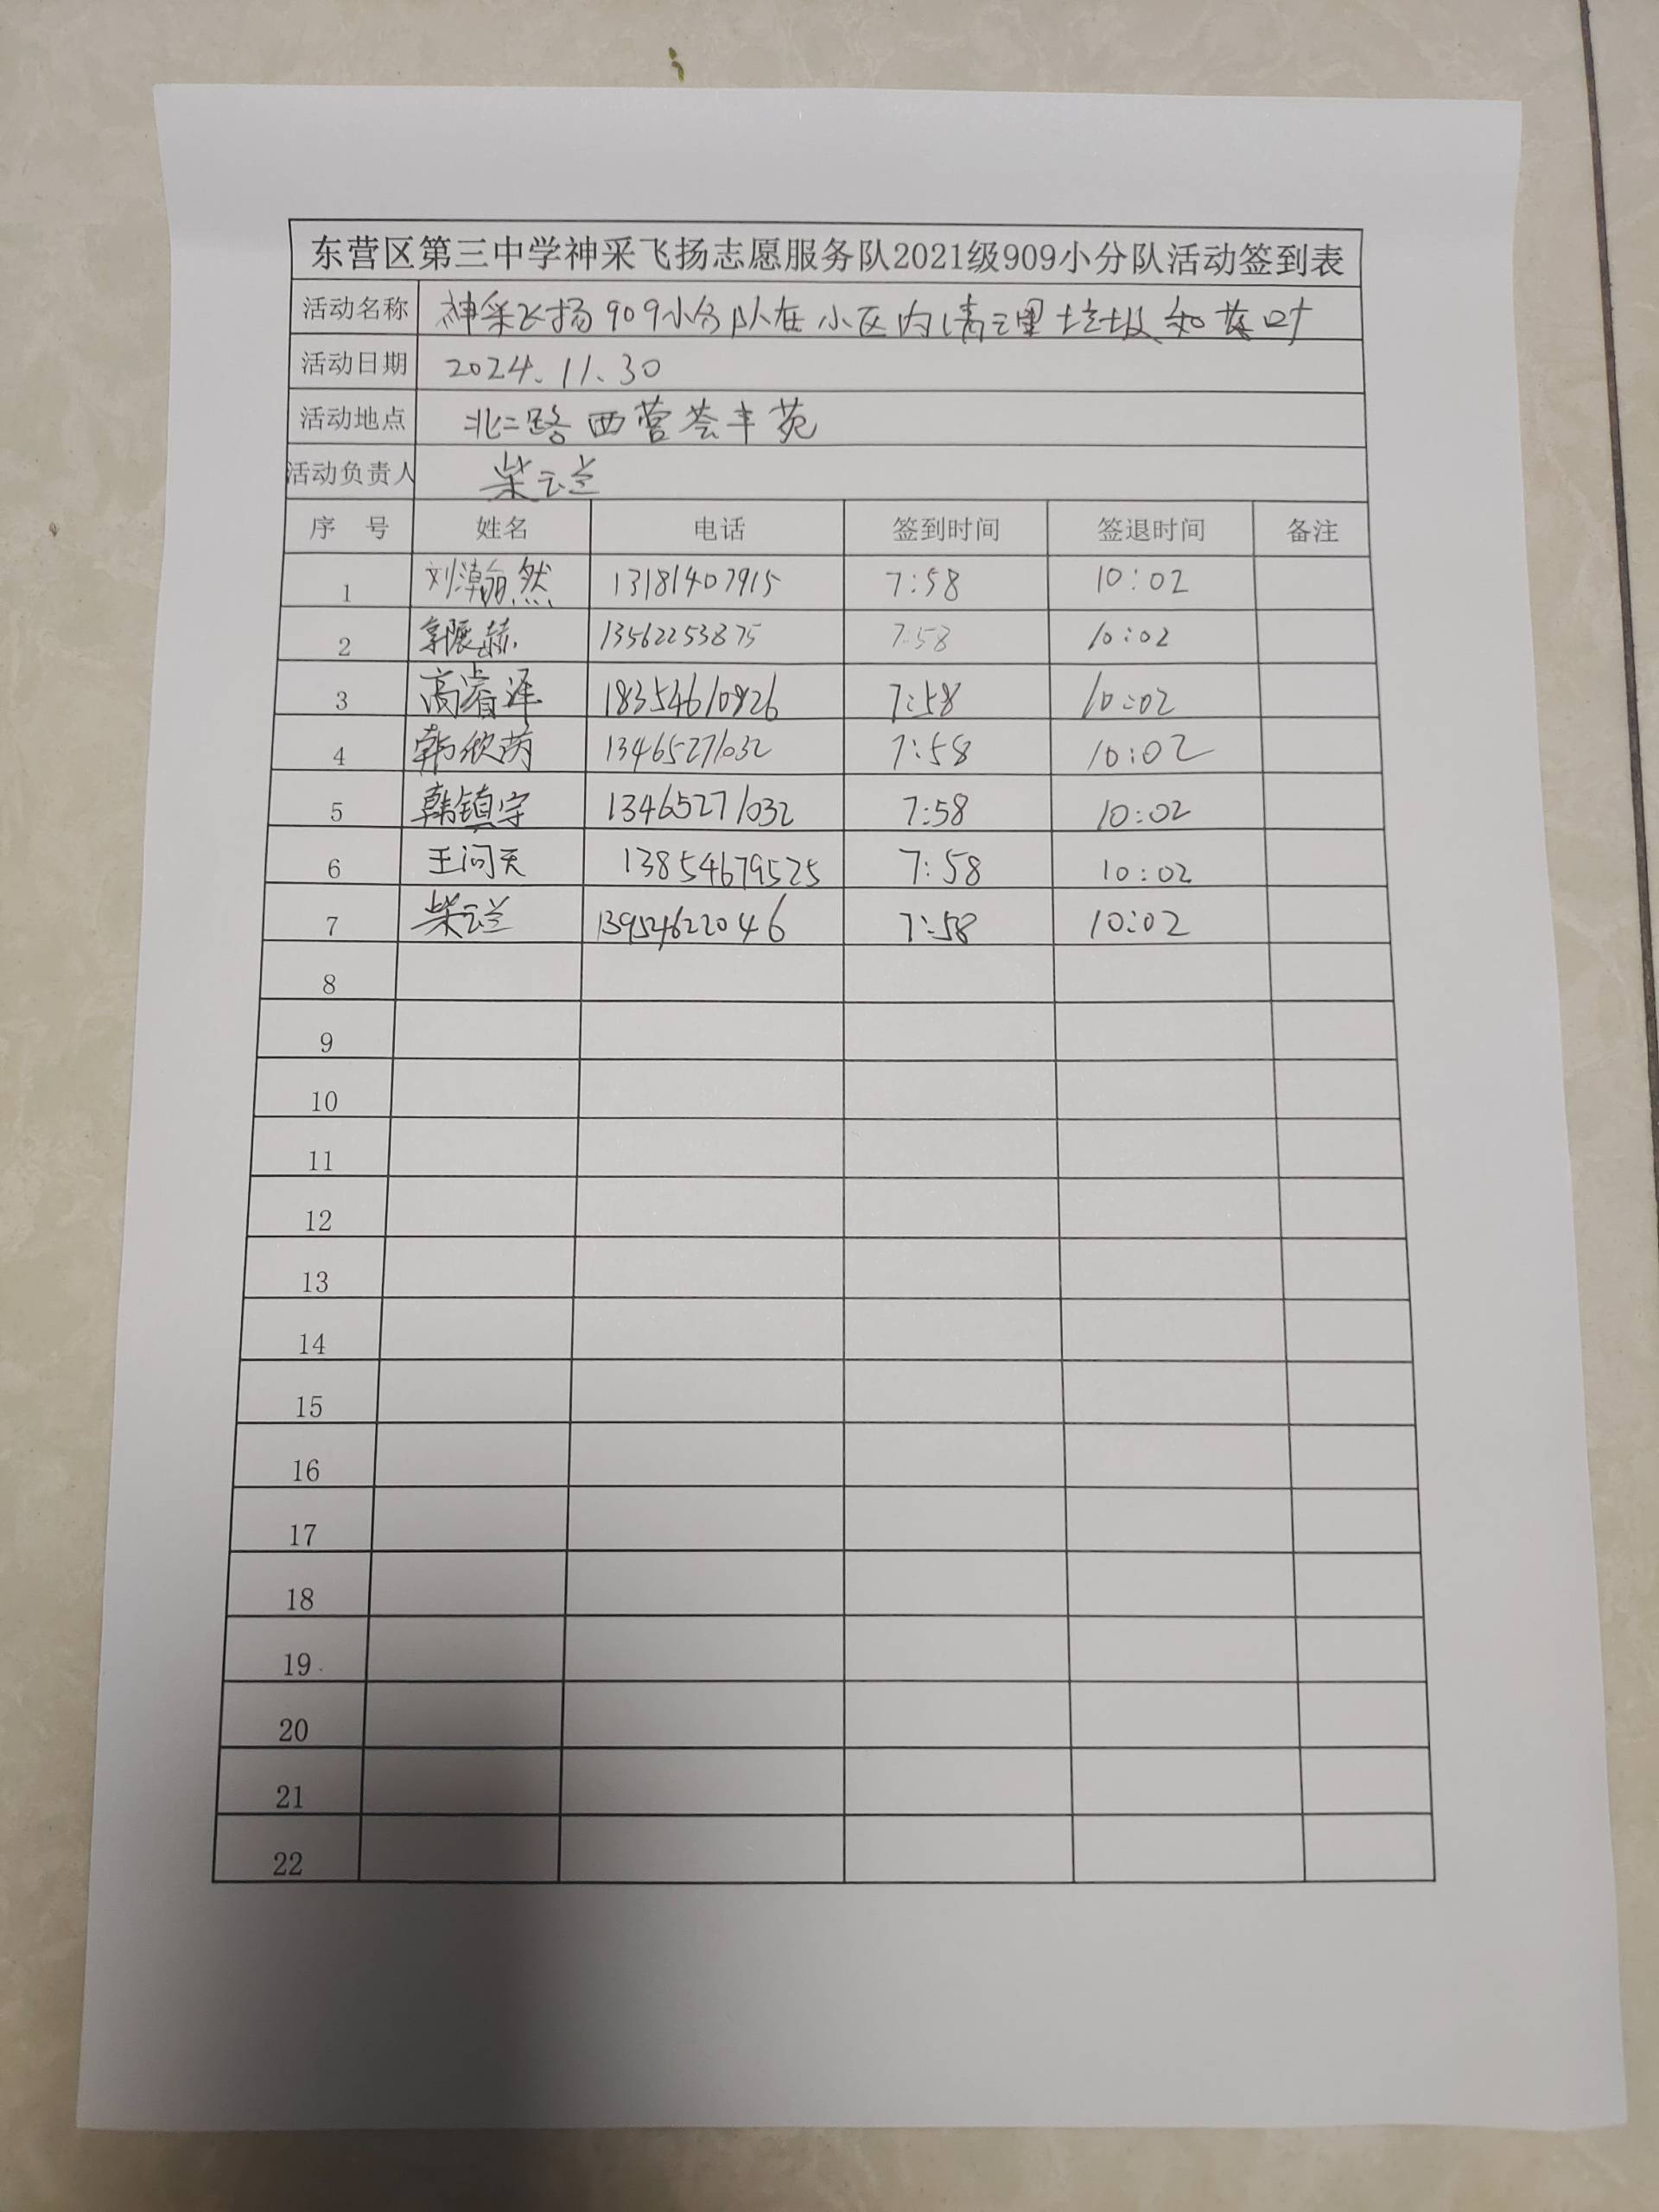 东营区第三中学神采飞扬志愿服务队2021级909小分队活动签到表
活动名称 神采飞扬909小分队在小区内清理垃圾和落叶
活动日期 2024.11.30
活动地点 北二路西营荟丰苑
活动负责人 柴云兰
序 号 姓名 电话 签到时间 签退时间 备注
1 刘瀚然 13181407915 7:58 10:02
2 郭展赫 13562253875 7:58 10:02
3 高睿泽 18354610826 7:58 10:02
4 韩欣芮 13465271032 7:58 10:02
5 韩镇宇 13465271032 7:58 10:02
6 王问天 13854679525 7:58 10:02
7 柴云兰 13954622046 7:58 10:02
8
9
10
11
12
13
14
15
16
17
18
19
20
21
22